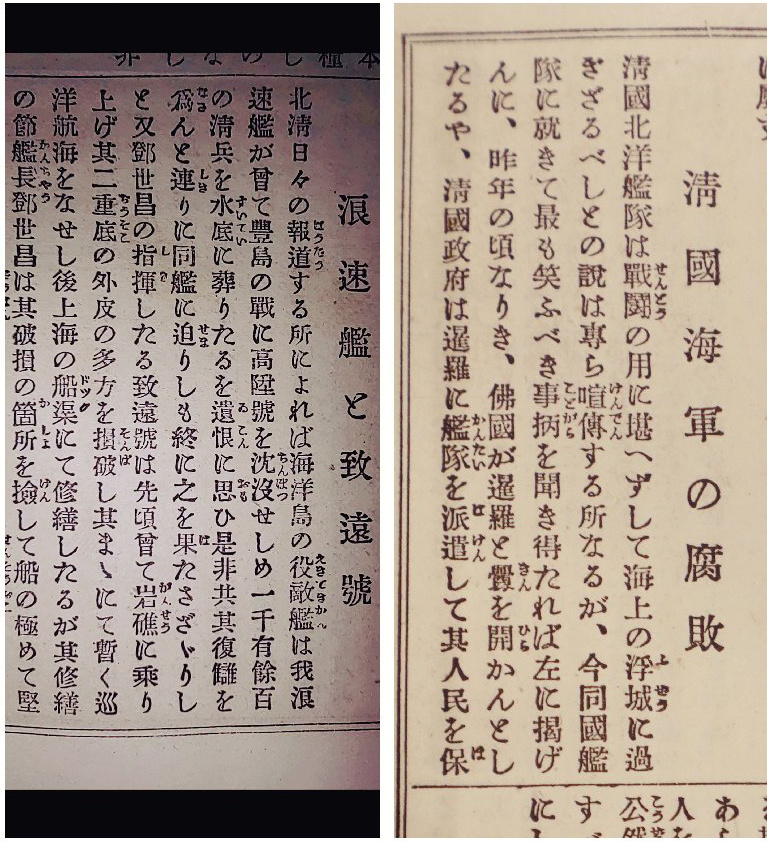 清國海軍の腐敗
清國北洋艦隊は戰鬪の用に堪へずして海上の浮城に過
ぎざるべしとの說は專ら喧傳する所なるが、今同國艦
隊に就きて最も笑ふべき事柄を聞き得たれば左に揭げ
んに、昨年の頃なりき、佛國が暹羅と釁を開かんとし
たるや、清國政府は暹羅に艦隊を派遣して其人民を保
浪速艦と致遠號
北清日々の報道する所によれば海洋島の役敵艦は我浪
速艦が曾て豐島の戰に高陞號を沈沒せしめ一千有餘百
の清兵を水底に葬りたるを遺恨に思ひ是非共其復讎を
爲んと連りに同艦に迫りしも終に之を果たさゞりし
と又鄧世昌の指揮したる致遠號は先頃曾て岩礁に乘り
上げ其二重底の外皮の多方を損破し其まゝにて暫く巡
洋航海をなせし後上海の船渠にて修繕したるが其修繕
の節艦長鄧世昌は其破損の箇所を撿して船の極めて堅